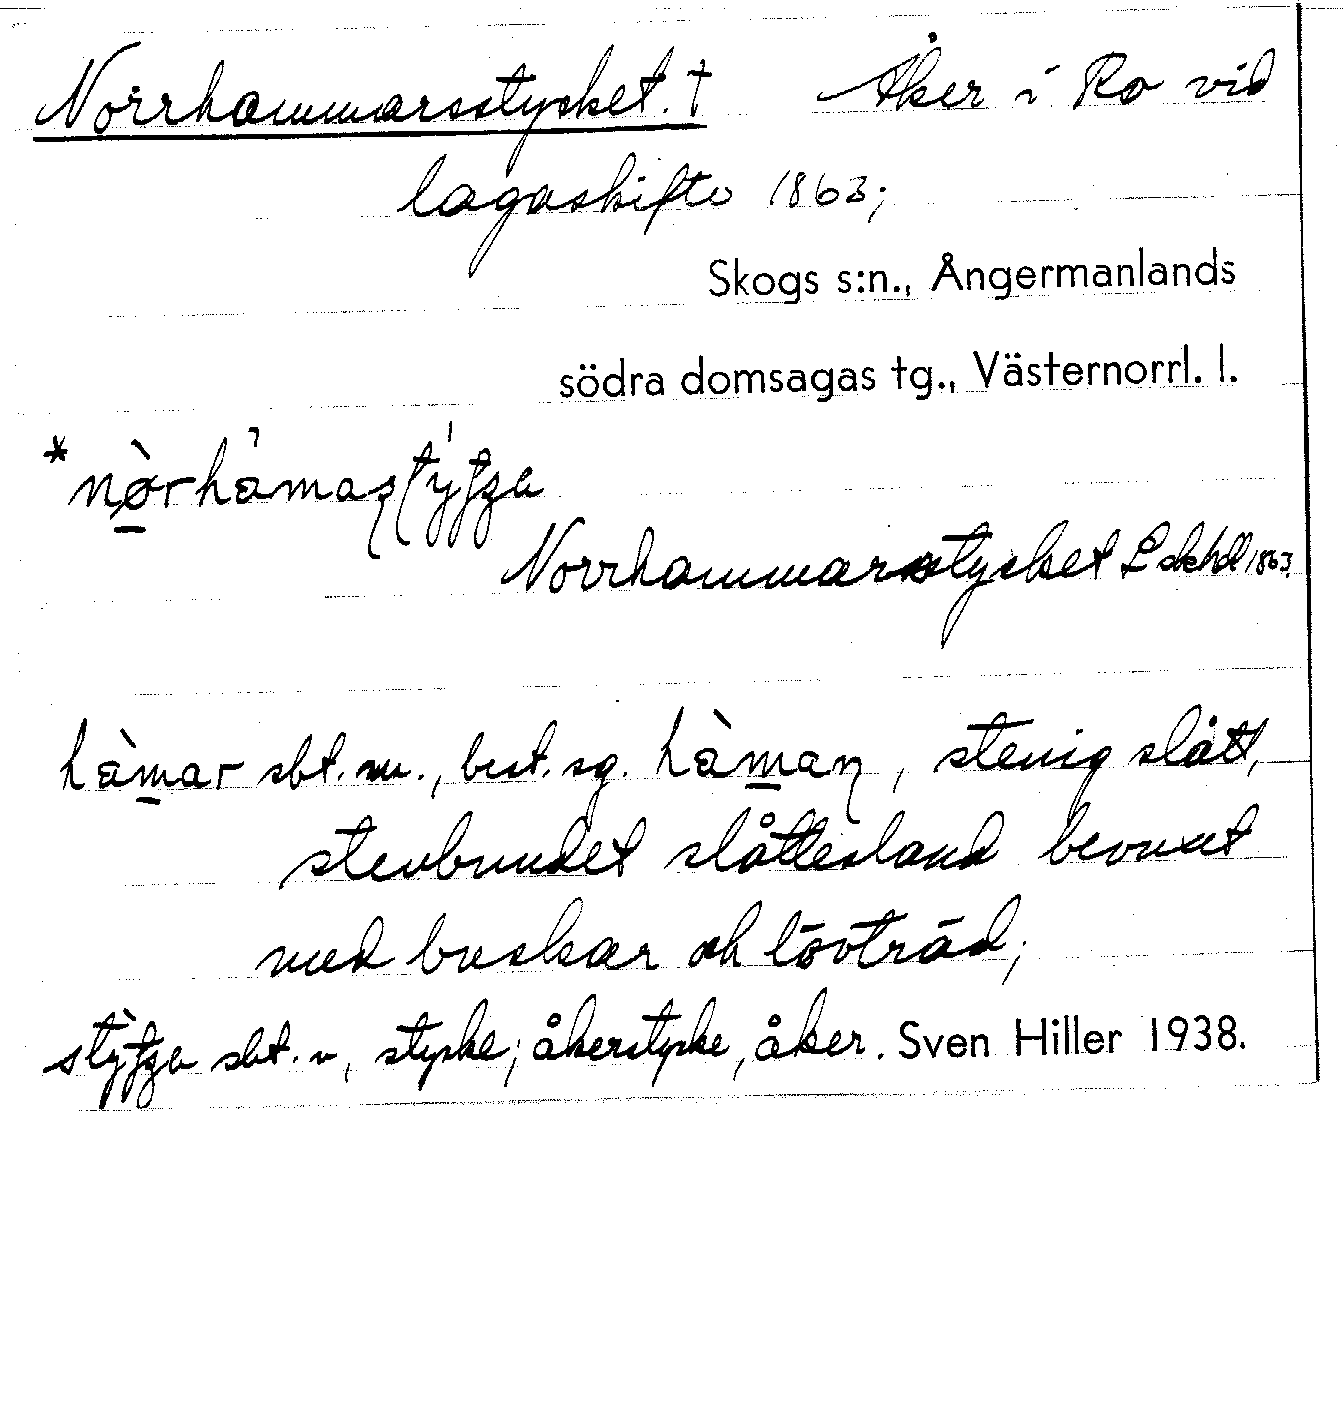 Norrhammarsstycket. † Åker i Ro vid
lagaskifte 1863;
Skogs s:n., Ångermanlands
södra domsagas tg., Västernorrl. l.
Norrhammarsstycket L skhdl 1863.
hàmar sbt. m., best. sg. hàmaɳ, stenig slått,
stenbundet slåttesland bevuxet
med buskar och lövträd;
sbt. n, stycke; åkerstycke, åker. Sven Hiller 1938.